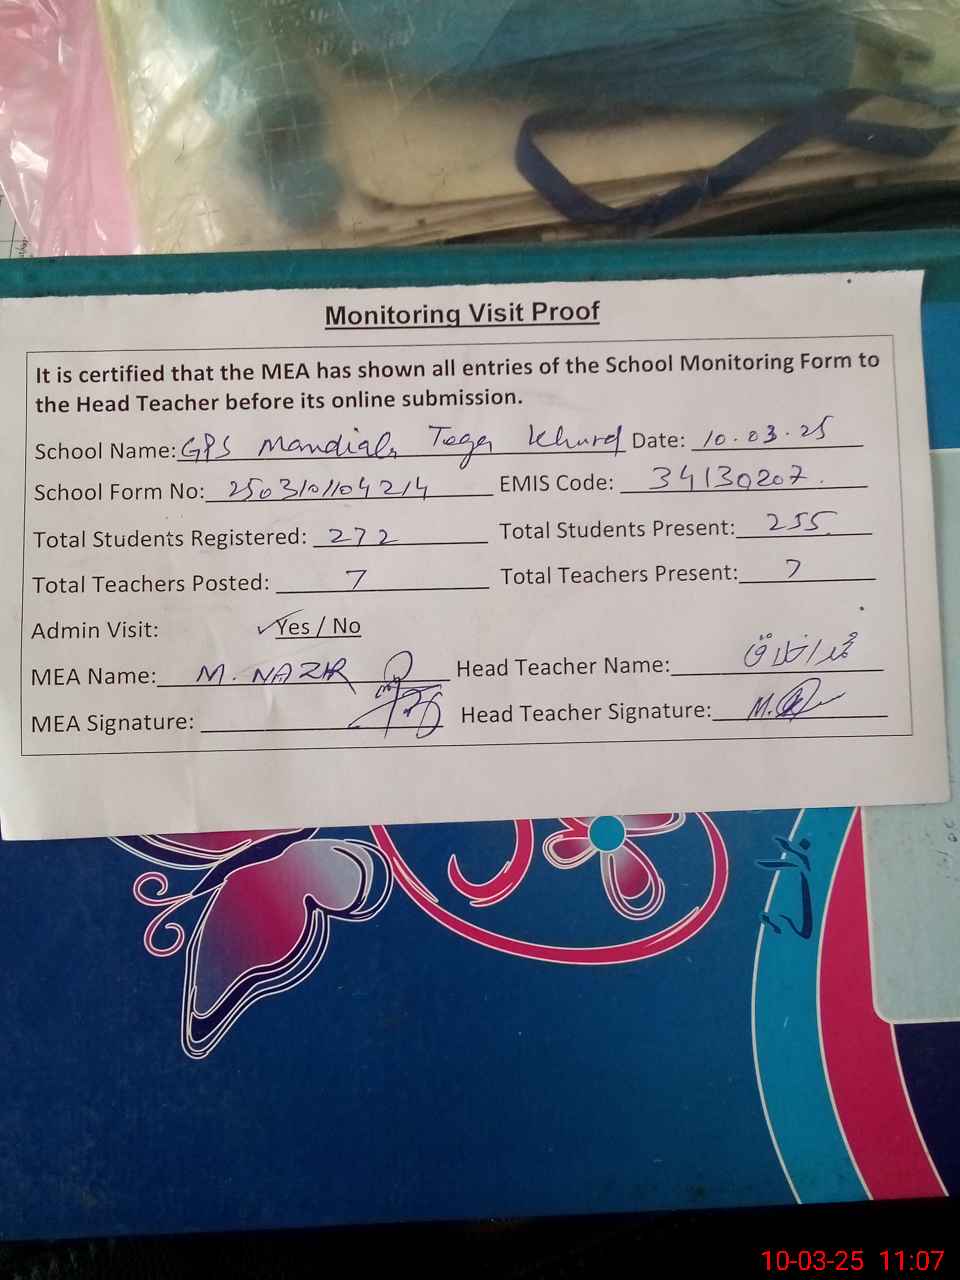 Monitoring Visit Proof
It is certified that the MEA has shown all entries of the School Monitoring Form to
the Head Teacher before its online submission.
School Name: GPS Mandial, Toga Khurd Date: 10.03.25
School Form No: 2503101104214 EMIS Code: 34130207
Total Students Registered: 272 Total Students Present: 255
Total Teachers Posted: 7 Total Teachers Present: 7
Admin Visit: ✓Yes / No
MEA Name: M. NAZIR Head Teacher Name: محمد اخلاق
MEA Signature: Head Teacher Signature: M.
10-03-25 11:07